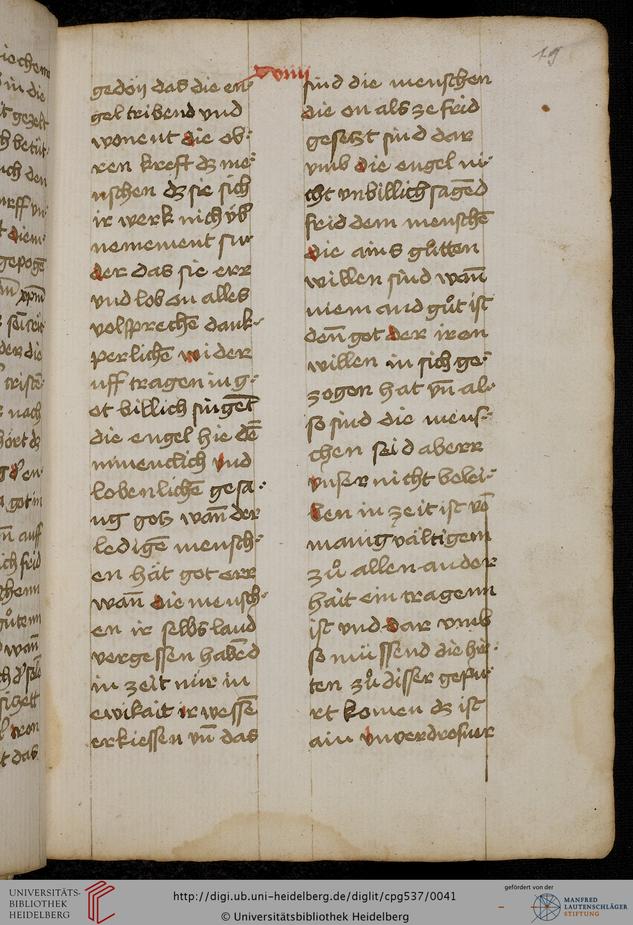 xviiij
19
gedön das die en
gel tribend vnd
wonent die ob⸗
ren kreft dz me⸗
nschen dz sie sich
ir werk nich vb
nemement fur
der das sie err
vnd lob an alles
volsprechē dank⸗
perlichē wider
uff tragen in g⸗
ot billich singēt
die engel hie dē
minenclich vnd
lobenlichē gesa⸗
ng gotz wañ der
ledigē mensch⸗
en hät got err
wañ die mensch⸗
en ir selbs laud
vergessen habēd
in zeit nür in
ewikait ir wessē
erkiessen vñ das
sind die menschen
die on als ze frid
geseczt sind dar
vmb die engel ni⸗
cht vnbillich sagēd
frid dem menschē
die ains gůtten
willen sind wañ
niemand gůt ist
deñ got der iren
willen in sich ge⸗
zogen hat vñ al⸗
so sind die mens⸗
chen seid aberr
vnser nicht belei⸗
ben in zeit ist vō
manigvältigem
zů allen ander
hait ein tragenn
ist vnd dar vmb
so müssend die hir⸗
ten zů disser gepur
rt komen dz ist
ain vnverdrosner
UNIVERSITÄTS-
BIBLIOTHEK
HEIDELBERG
http://digi.ub.uni-heidelberg.de/diglit/cpg537/0041
© Universitätsbibliothek Heidelberg
gefördert von der
MANFRED
LAUTENSCHLÄGER
STIFTUNG